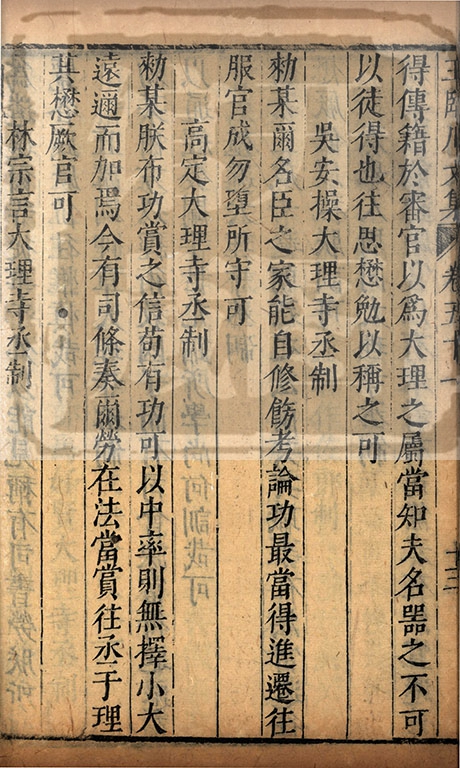 王臨川文集 卷五十一 十三
得傳籍於審官以爲大理之屬當知夫名器之不可
以徒得也往思懋勉以稱之可
吳安操大理寺丞制
勑某爾名臣之家能自修飭考論功最當得進遷往
服官成勿墮所守可
高定大理寺丞制
勑某朕布功賞之信苟有功可以中率則無擇小大
遠邇而加焉今有司條奏爾勞在法當賞往丞于理
其懋厥官可
林宗言大理寺丞制